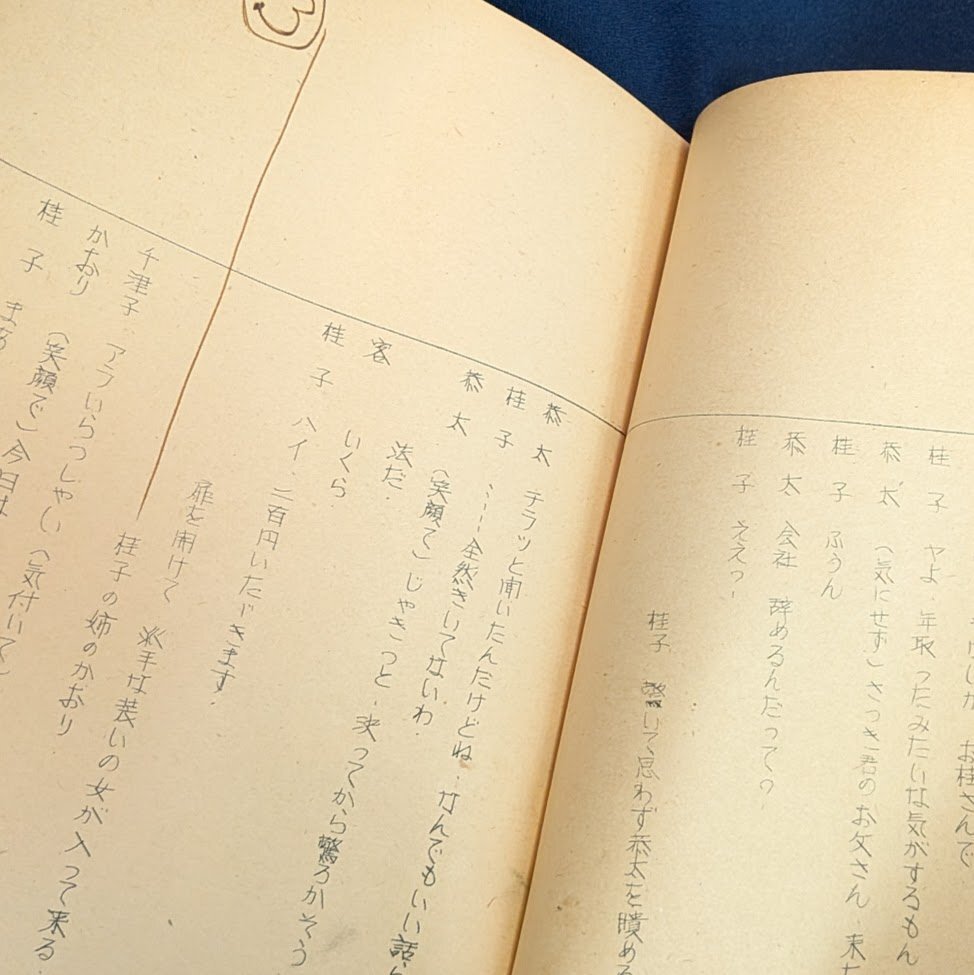 お桂さんで
桂子 ヤよ、年取ったみたいな気がするもん
恭太 （気にせず）さっき君のお父さん、来
桂子 ふうん
恭太 会社 辞めるんだって？
桂子 ええっ
桂子、驚いて、思わず恭太を瞶める
恭太 チラッと聞いたんだけどね、なんでもいい話
桂子 ……全然きいてないわ
恭太 （笑顔で）じゃきっと、決ってから驚ろかそう
法だ
客 いくら
桂子 ハイ、二百円いただきます
扉を開けて 派手な装いの女が入って来る
桂子の姉のかおり
千津子 アラいらっしゃい（気付いて）
かおり （笑顔で）今日は
桂子 まあ